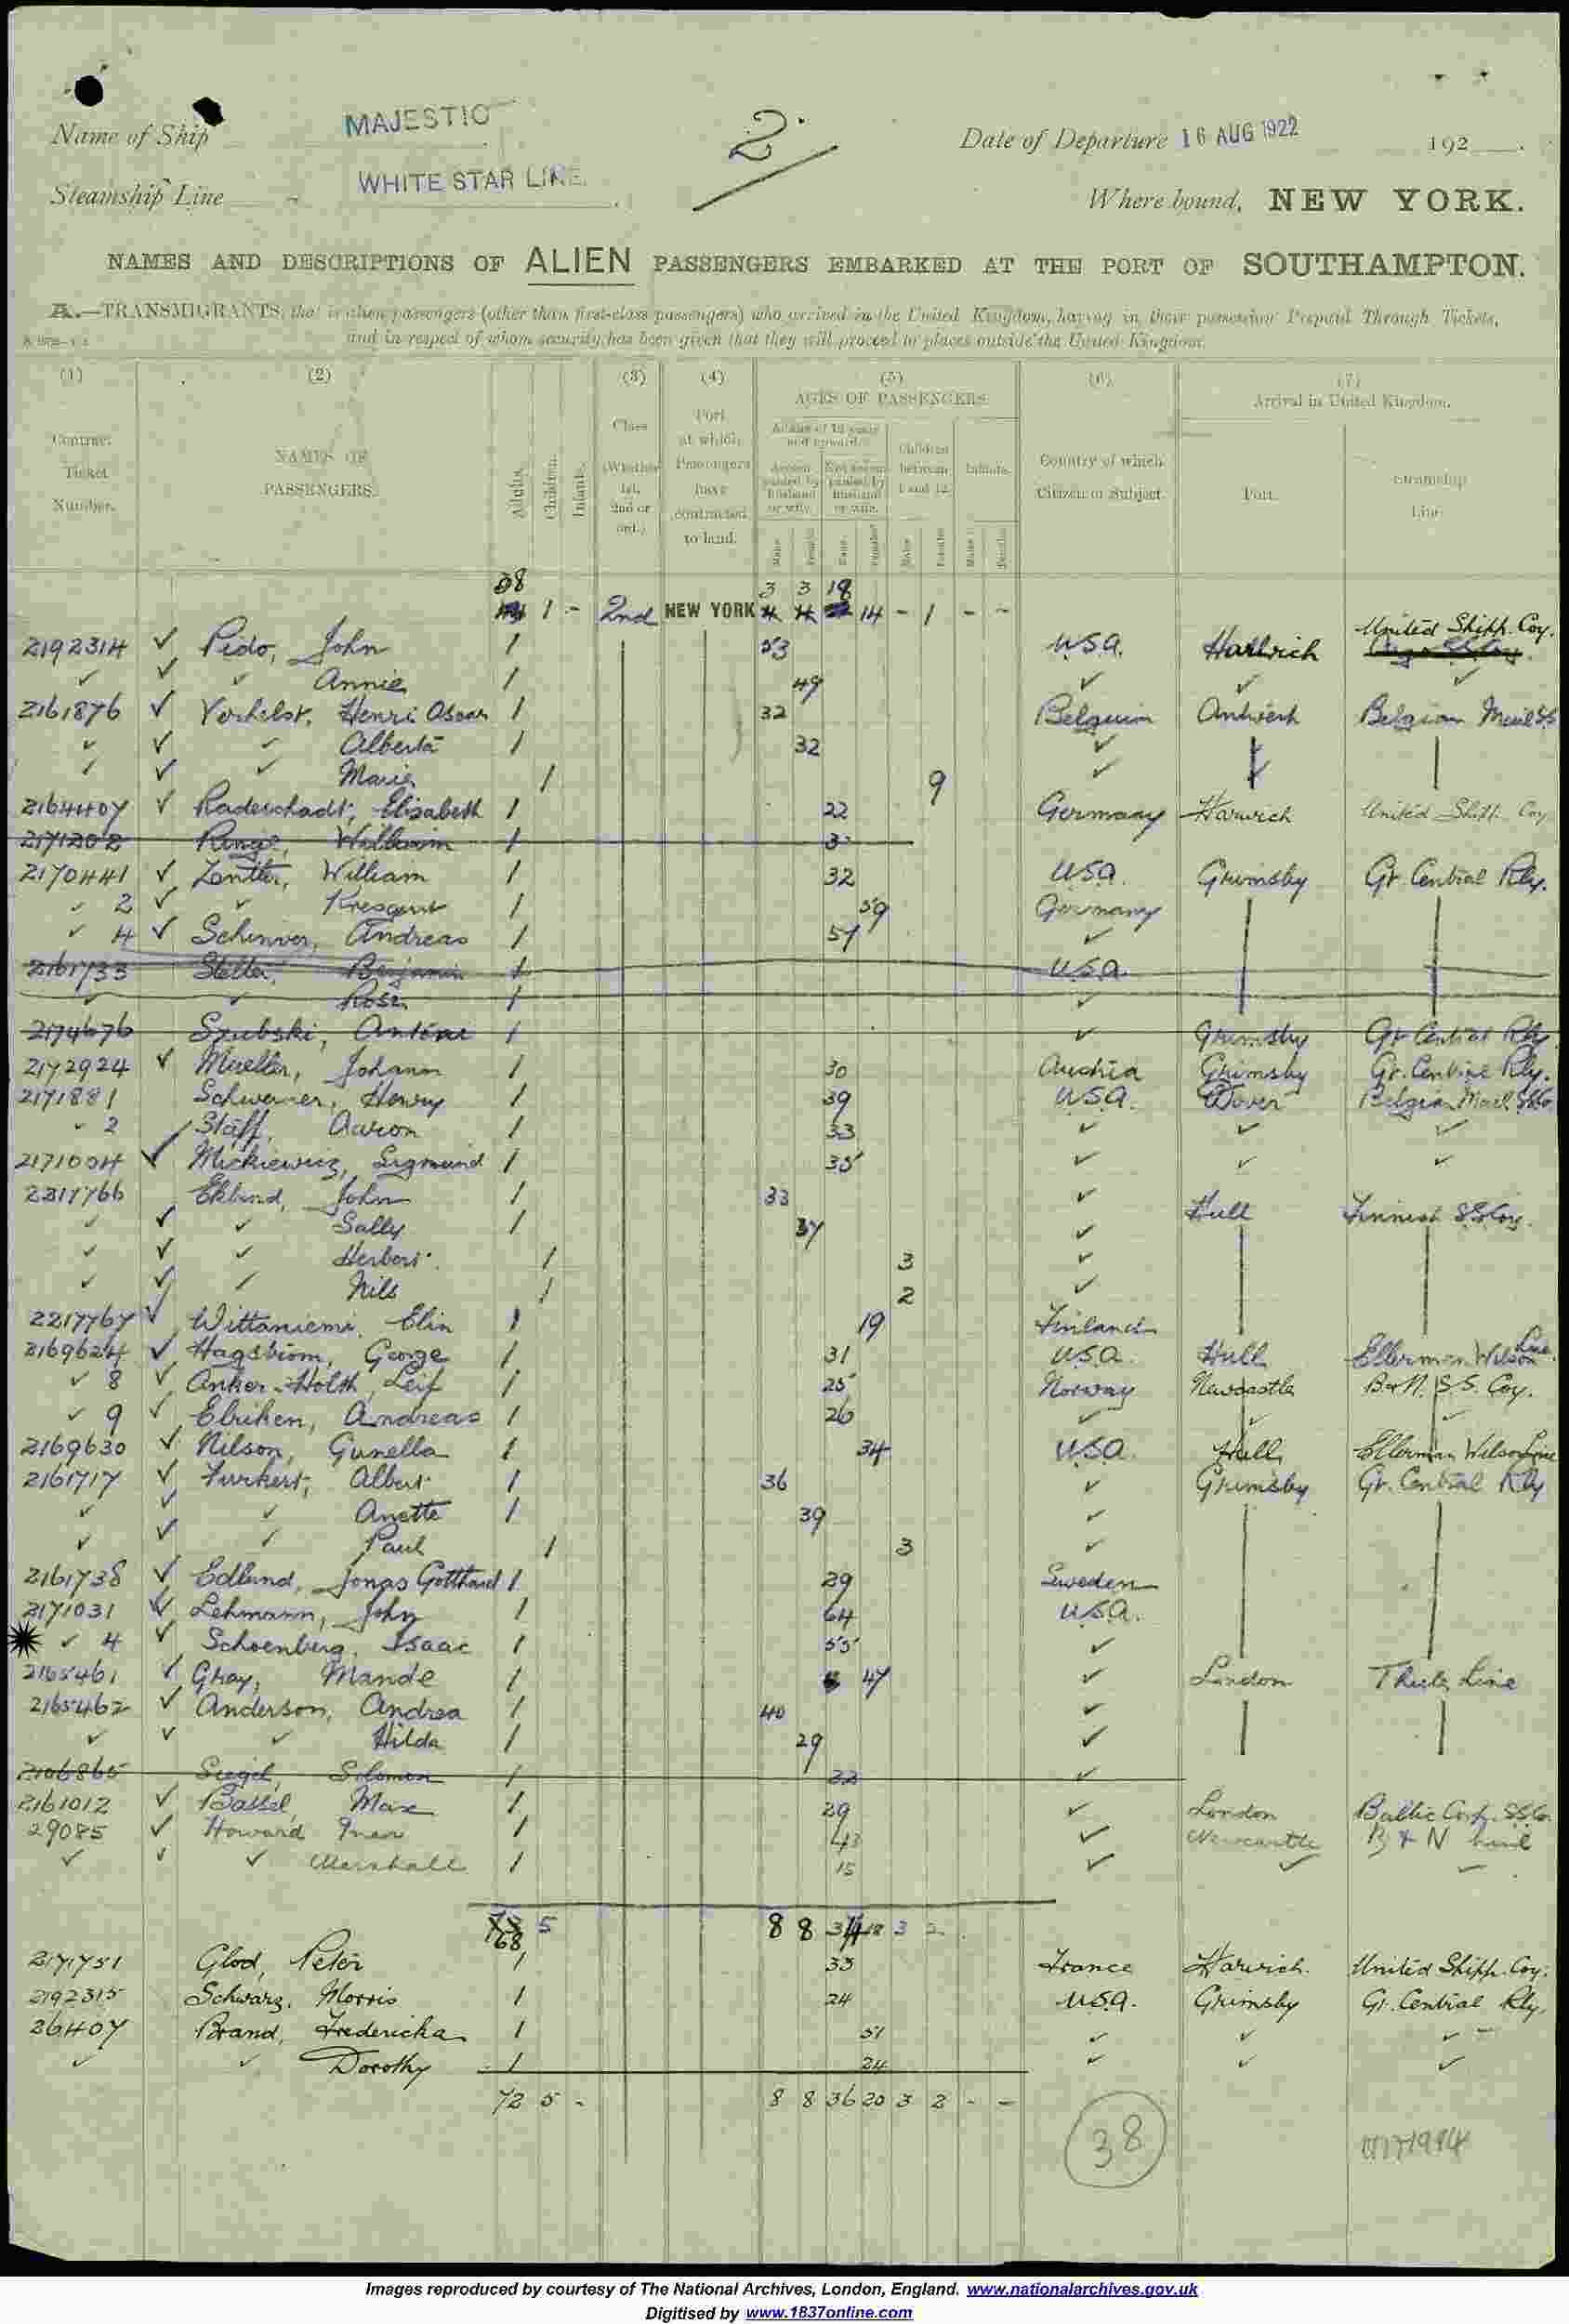 Name of Ship MAJESTIC
2.
Date of Departure 16 AUG 1922 192
Steamship Line WHITE STAR LINE.
Where bound, NEW YORK.
NAMES AND DESCRIPTIONS OF ALIEN PASSENGERS EMBARKED AT THE PORT OF SOUTHAMPTON.
A.—TRANSMIGRANTS, that is alien passengers (other than first-class passengers) who arrived in the United Kingdom, having in their possession Prepaid Through Tickets,
and in respect of whom security has been given that they will proceed to places outside the United Kingdom.
(1) (2) (3) (4) (5) (6) (7)
Contract Ticket Number.
NAMES OF PASSENGERS.
Adults. Children. Infants.
Class (Whether 1st, 2nd or ord.)
Port at which Passengers have contracted to land.
AGES OF PASSENGERS
Adults of 12 years and upwards.
Accompanied by husband or wife. Not accompanied by husband or wife.
Children between 1 and 12.
Infants.
Country of which Citizen or Subject.
Arrival in United Kingdom.
Port. Steamship Line
38 3 3 18
1 - 2nd NEW YORK 14 - 1 - -
2192314 Pido, John 1 53 U.S.A. Harwich United Shipp. Coy.
Annie 1 49
2161876 Verhelst, Henri Oscar 1 32 Belgium Antwerp Belgian Mail SS
Alberta 1 32
Marie 1 9
2164407 Raderschadt, Elisabeth 1 22 Germany Harwich United Shipp. Coy
2171202 1
2170441 Zentler, William 1 32 U.S.A. Grimsby Gt. Central Rly.
2 1 59 Germany
4 Andreas 1 57
2161733 Benjamin 1 U.S.A.
Rose 1
2174676 Szubski, Antoni 1 Grimsby Gt Central Rly
2172924 Mueller, Johann 1 30 Austria Grimsby Gt. Central Rly.
2171881 Henry 1 39 U.S.A. Dover Belgian Mail SSCo
2 Staff, Aaron 1 33
2171004 Mickiewicz, Sigmund 1 35
2217766 Eklund, John 1 33 Hull Finnish SS Coy.
Sally 1 37
Herbert 1 3
Nils 1 2
2217767 Wittaniemi, Elin 1 19 Finland
2169624 Hagstrom, George 1 31 U.S.A. Hull Ellerman Wilson Line.
8 Anker-Holth, Leif 1 25 Norway Newcastle B&N. S.S. Coy.
9 Andreas 1 26
2169630 Nilson, Gunella 1 34 U.S.A. Hull Ellerman Wilson Line
2161717 Furkert, Albert 1 36 Grimsby Gt. Central Rly
Anette 1 39
Paul 1 3
2161738 Edlund, Jonas Gotthard 1 29 Sweden
2171031 Lehmann, John 1 64 U.S.A.
4 Schoenberg, Isaac 1 55
2165461 Gray, Maude 1 47 London Thule Line
2165462 Anderson, Andrea 1 40
Hilda 1 29
2106865 Siegel, Solomon 1 22
2161012 Bassel, Max 1 29 London Baltic SSCo.
29085 Howard Inez 1 43 Newcastle B & N Line
Marshall 1 15
73 5 8 8 34 18 3 2
68
2171751 Glod, Peter 1 33 France Harwich United Shipp. Coy.
2192315 Schwarz, Morris 1 24 U.S.A. Grimsby Gt. Central Rly.
26407 Brand, Fredericka 1 51
Dorothy 1 24
72 5 - 8 8 36 20 3 2 - -
38
Images reproduced by courtesy of The National Archives, London, England. www.nationalarchives.gov.uk
Digitised by www.1837online.com